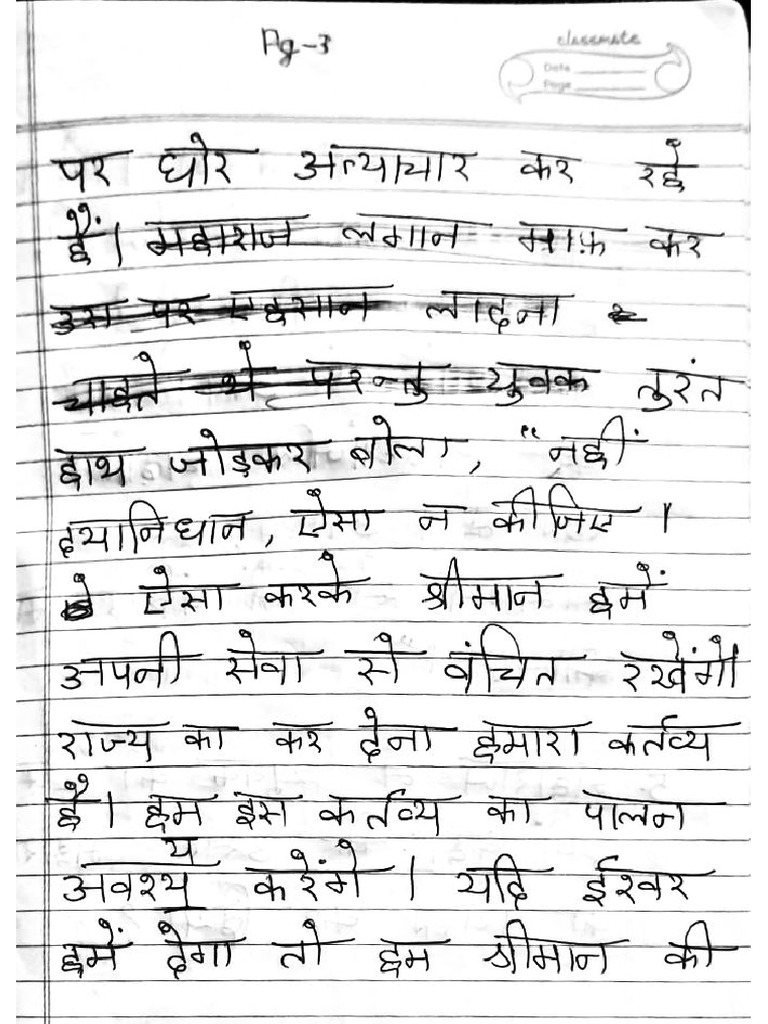 Pg-3
classmate
Date
Page
पर घोर अत्याचार कर रहे
हैं। महाराज लगान माफ़ कर
उस पर एहसान लादना
चाहते थे, परन्तु युवक तुरंत
हाथ जोड़कर बोला, "नहीं
दयानिधान, ऐसा न कीजिए।
ऐसा करके श्रीमान हमें
अपनी सेवा से वंचित रखेंगे।
राज्य का कर देना हमारा कर्तव्य
है। हम इस कर्तव्य का पालन
य
अवश्य करेंगे। यदि ईश्वर
हमें देगा तो हम श्रीमान की